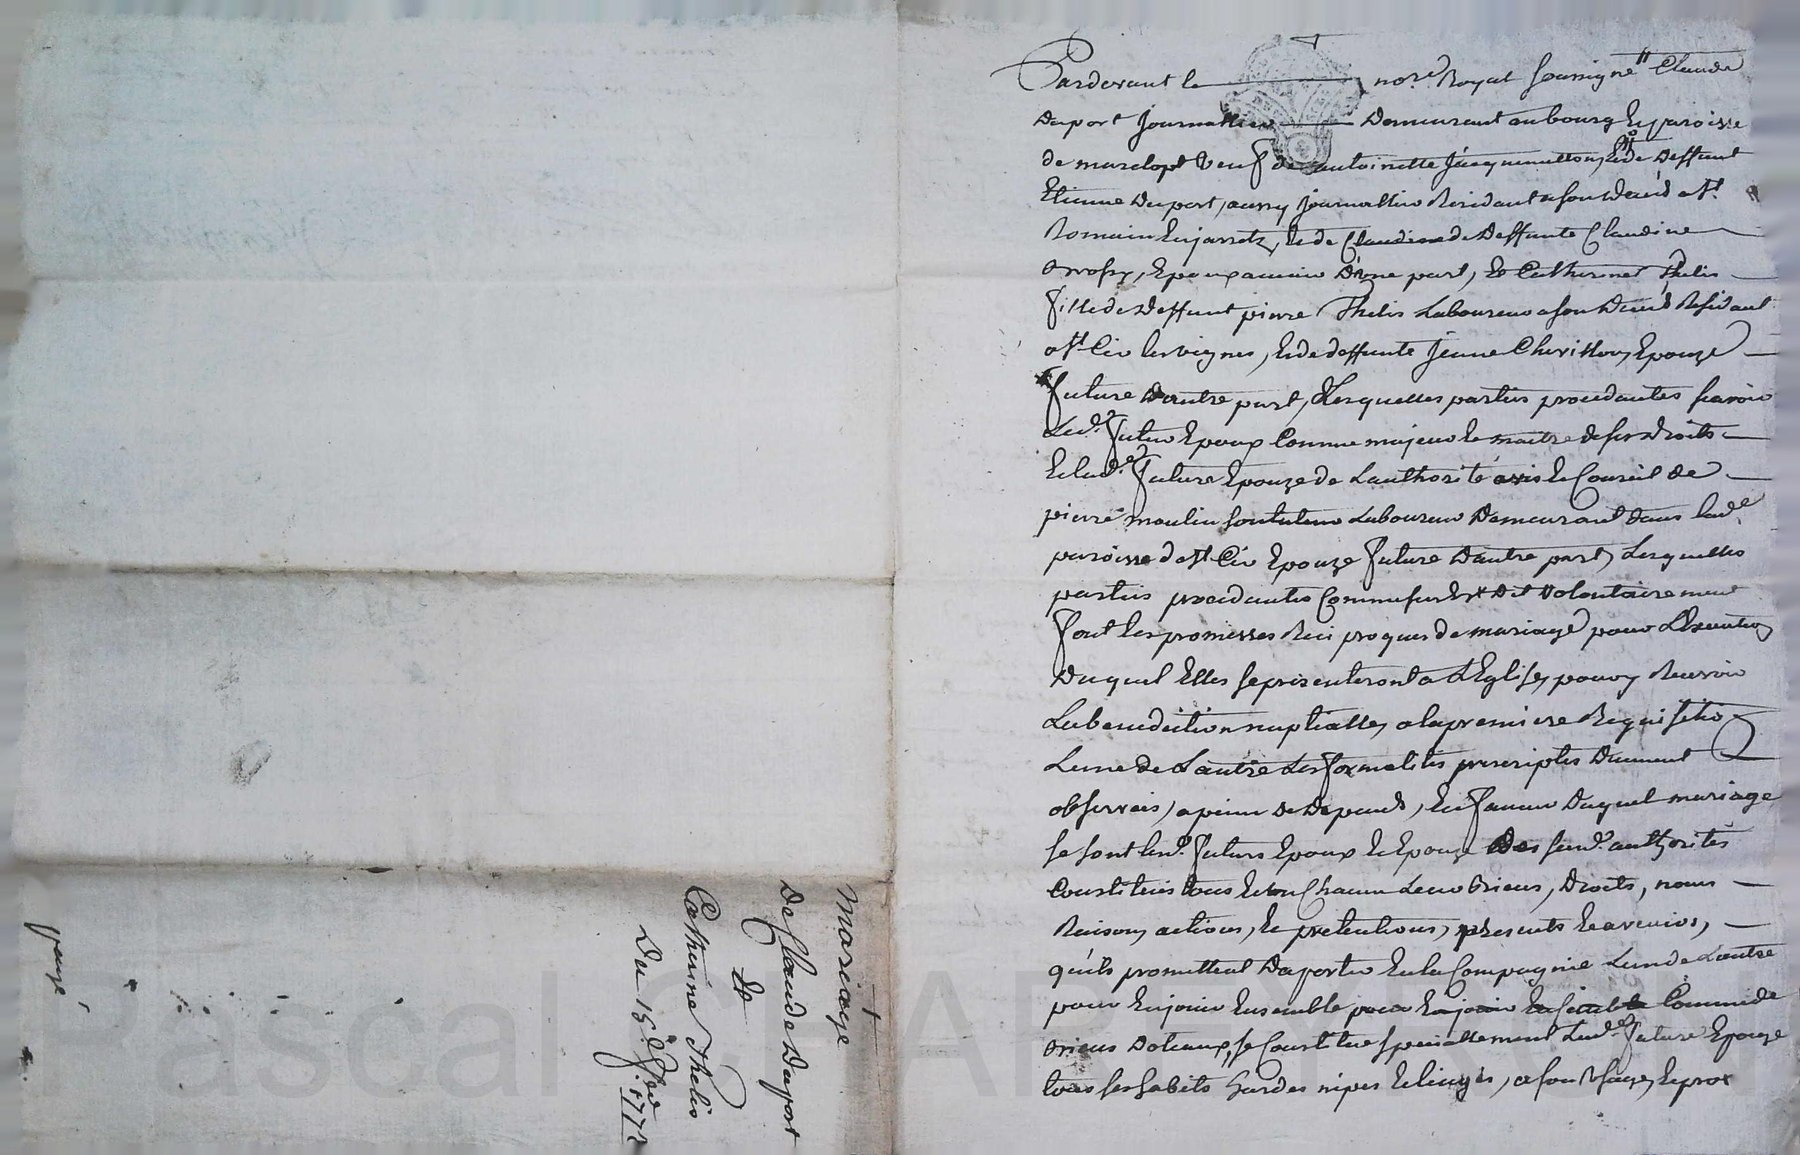 Pardevant le no.re Royal soussigné Claude
Duport Journallier Demeurant au bourg Et paroisse
de marclopt Veuf de antoinette Jacquemetton, Et de Deffunt
Etienne Duport, aussy Journallier Residant a son Deced a St
Romain En jarretz, Et de Claudine de Deffunte Claudine
Epoux avenir D'une part, Et Catherine Thelis
fille de Deffunt pierre Thelis Laboureur a son Deced Residant
a St Cir les vignes, Et de deffunte Jeanne Epouze
future D'autre part, Lesquelles parties procedantes scavoir
Led.t futur Epoux Comme majeur Et maitre de ses Droits
Et lad.e future Epouze de L'authorité avis Et Conseil de
pierre moulin son tuteur Laboureur Demeurant dans lad.e
paroisse de St Cir Epouze future D'autre part, Lesquelles
parties procedantes Comme sus Est Dit Volontairement
font les promesses Reciproques de mariage pour L'Execution
Duquel Elles se presenteront a L'Eglise, pour y Recevoir
La benediction nuptialle, a la premiere Requisition
L'une de L'autre Les formalites prescriptes Duement
observées, a peine de Depends, En faveur Duquel mariage
se sont lesd. futurs Epoux Et Epouze Des susd. authorités
Constitués tous Et un Chacun Leurs Biens, Droits, noms
Raisons, actions, Et pretentions, presents Et avenirs,
qu'ils promettent D'aporter En la Compagnie L'un de L'autre
pour En jouir Ensemble pour En jouir Ensemble Comme de
Biens Dotaux, se Constitue specialement Lad.e future Epouze
tous ses habits hardes nipes Et linges, a son Usage, Et pror
Mariage
De Claude Duport
Et
Catherine Thelis
Du 15.e 1772
Pascal CHAREYRON